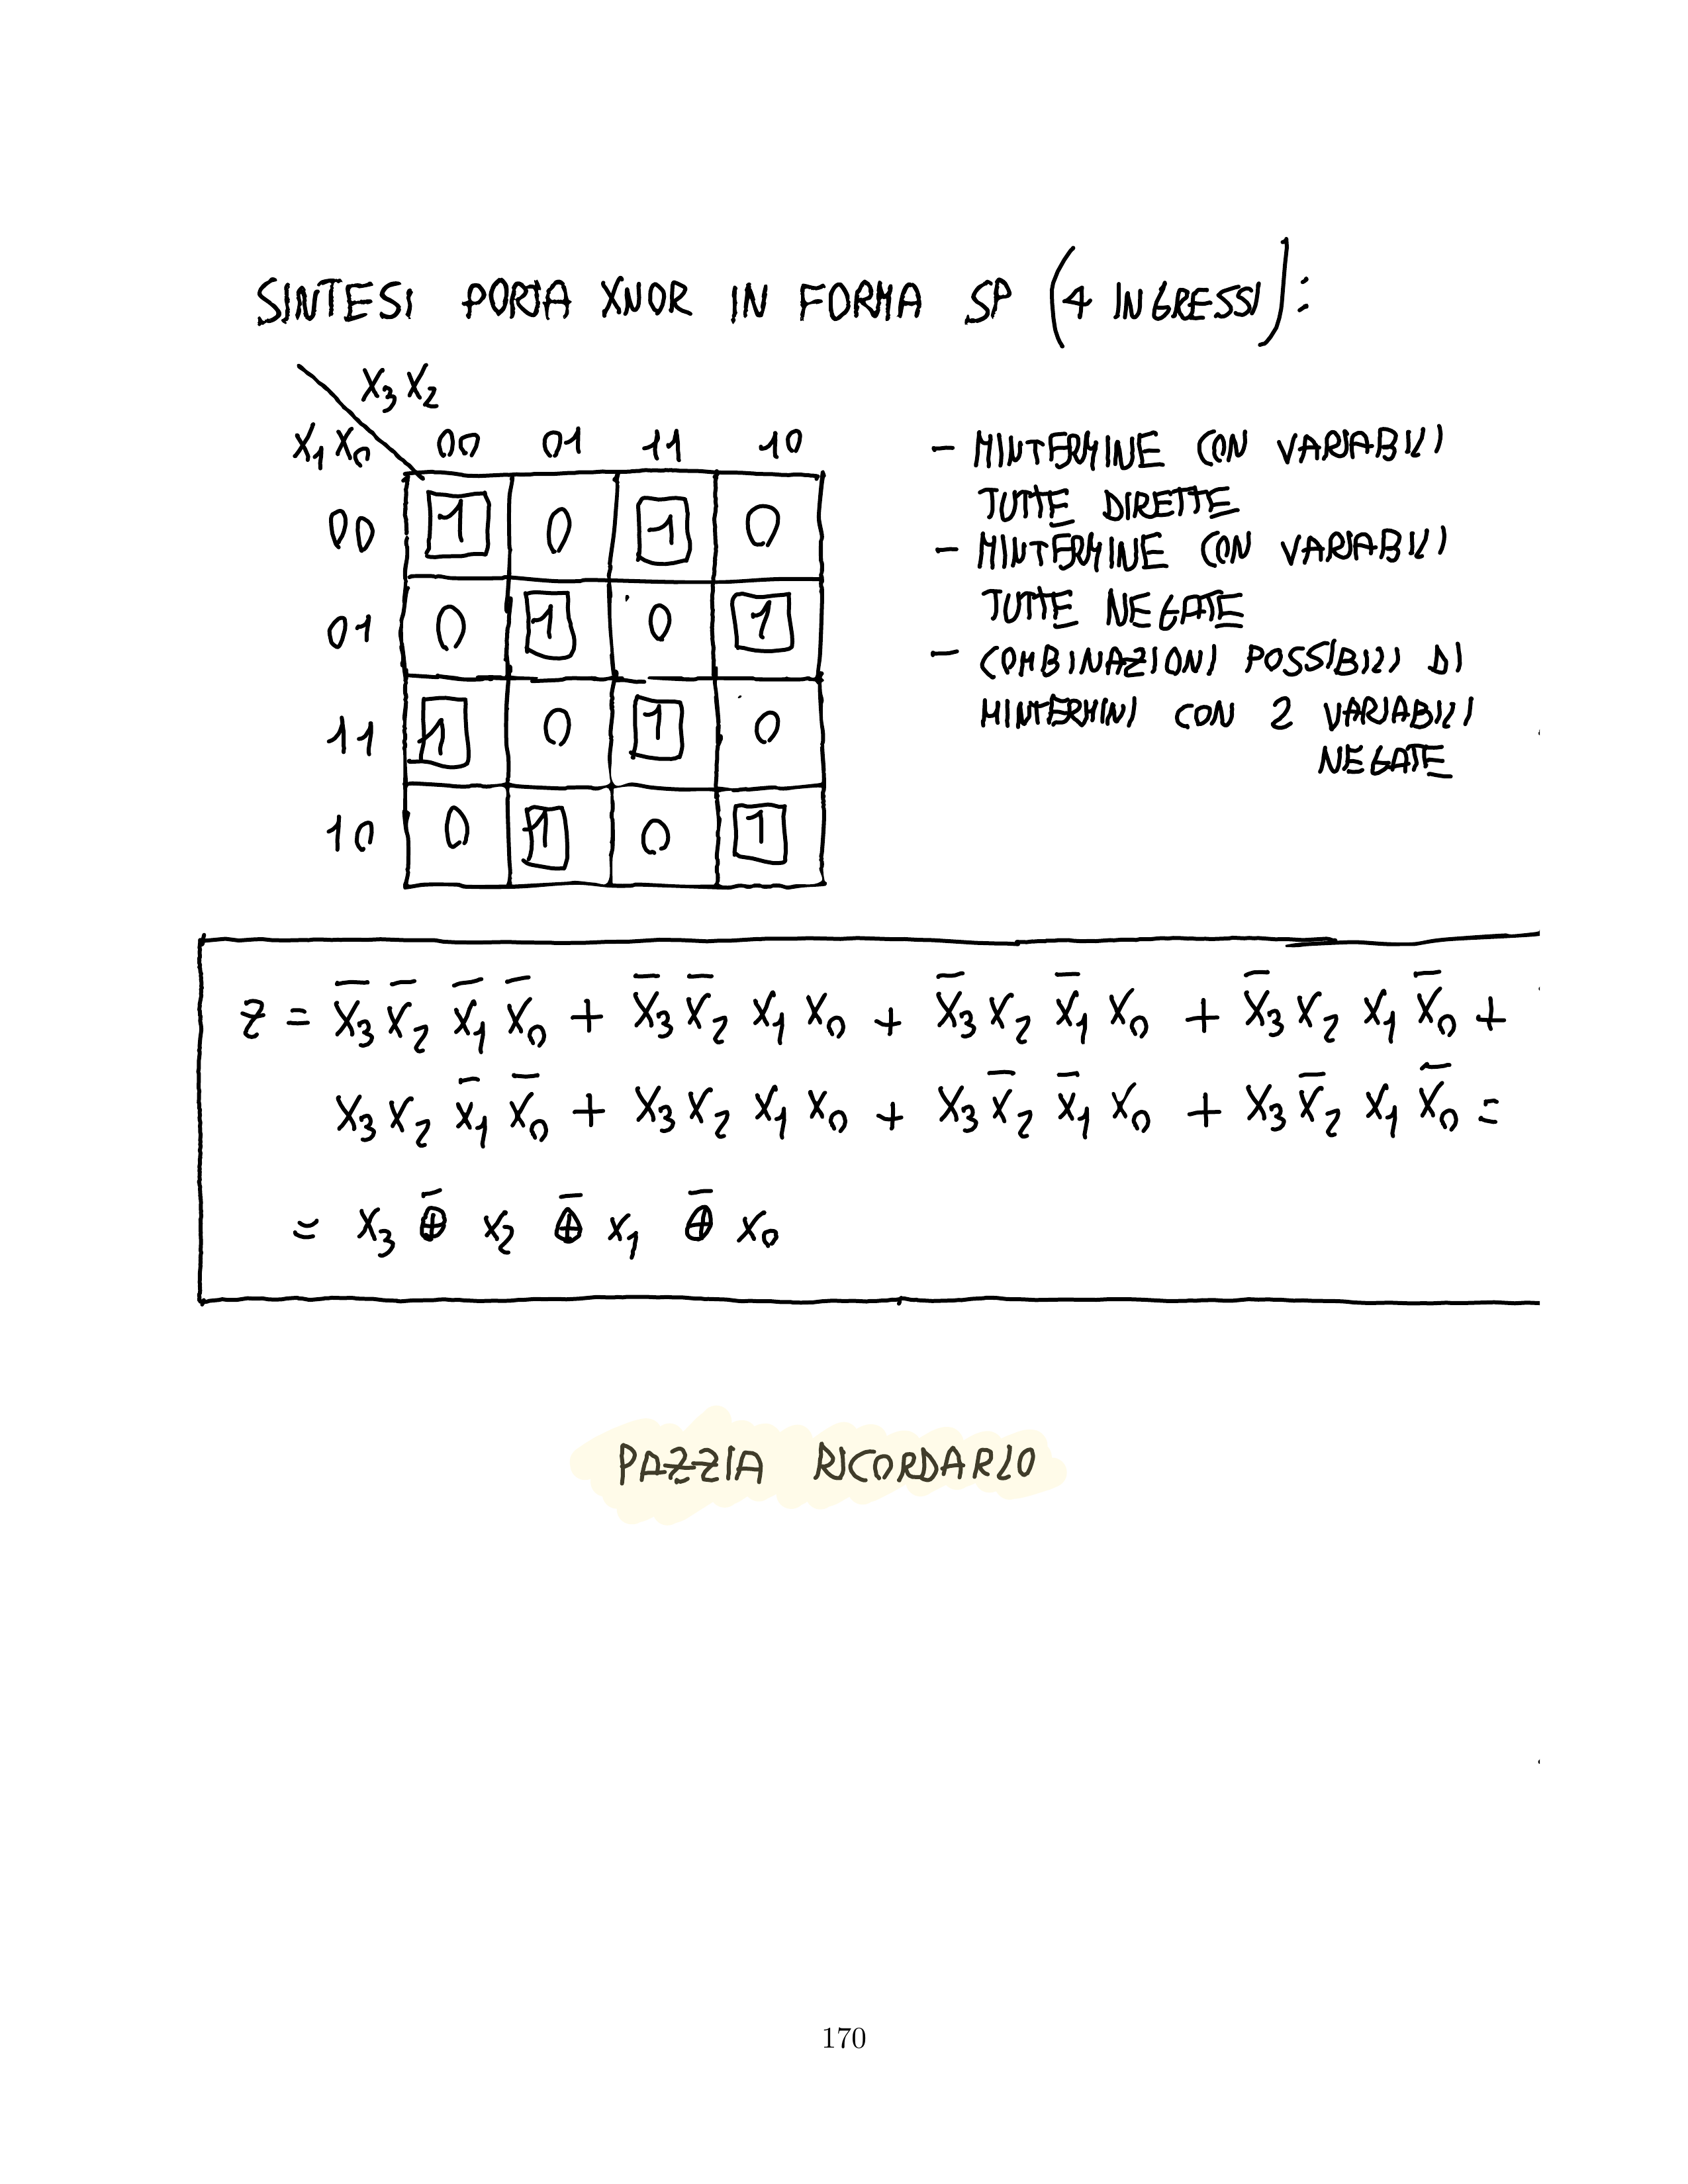 SINTESI PORTA XNOR IN FORMA SP (4 INGRESSI):
X₃ X₂
X₁ X₀ 00 01 11 10
00 1 0 1 0
01 0 1 0 1
11 1 0 1 0
10 0 1 0 1
- MINTERMINE CON VARIABILI
TUTTE DIRETTE
- MINTERMINE CON VARIABILI
TUTTE NEGATE
- COMBINAZIONI POSSIBILI DI
MINTERMINI CON 2 VARIABILI
NEGATE
Z = X̅₃ X̅₂ X̅₁ X̅₀ + X̅₃ X̅₂ X₁ X₀ + X̅₃ X₂ X̅₁ X₀ + X̅₃ X₂ X₁ X̅₀ +
X₃ X₂ X̅₁ X̅₀ + X₃ X₂ X₁ X₀ + X₃ X̅₂ X̅₁ X₀ + X₃ X̅₂ X₁ X̅₀ =
= X₃ ⊕̅ X₂ ⊕̅ X₁ ⊕̅ X₀
PAZZIA RICORDARLO
170